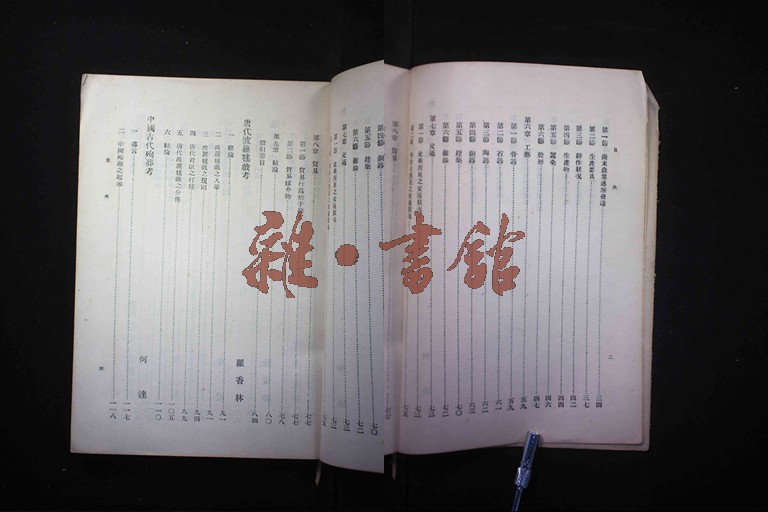 目次
第一節 商末農業逐漸發達 三四
第二節 生產要具 三七
第三節 耕作狀況 四二
第四節 生產物 四四
第五節 蠶桑 四六
第六節 牧畜 四七
第六章 工藝 五九
第一節 骨器 五九
第二節 石器 六一
第三節 陶器 六二
第四節 銅器 六三
第五節 建築
第六節
第七章 交通 七三
二
第八章 貿易
第四節 銅器 七〇
第五節 建築 七一
第六節 七二
第七章 交通 七三
第八章 貿易 七七
第一節 貿易行為始于 七七
第二節 貿易媒介物 七八
第九章 結論 八〇
徵引書目 八四
唐代波羅毬戲考 羅香林
一 緒論 九一
二 波羅毬戲之入華 九一
三 波羅毬戲之規則 九四
四 唐代君臣之打毬 九九
五 唐代波羅毬戲之分佈 一〇五
六 結論 一一〇
中國古代殉葬考 何達
一 導言 一一七
二 中國殉葬之起源 一一八
目次
雜·書館